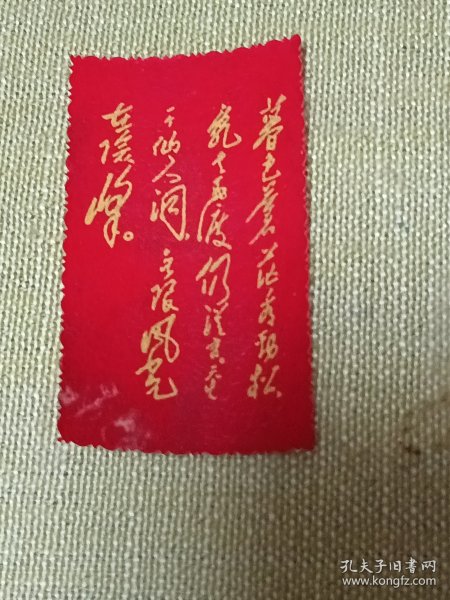 暮色苍茫看劲松
乱云飞渡仍从容天生
一个仙人洞无限风光
在险峰。
孔夫子旧书网
www.kongfz.com